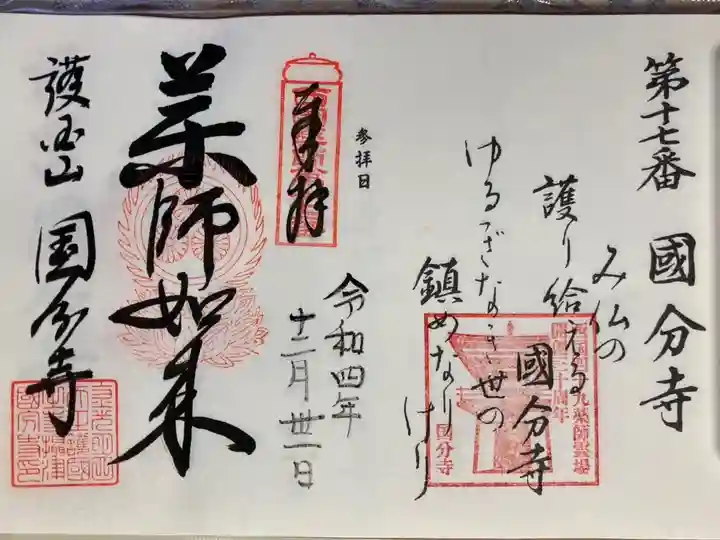 第十七番 國分寺
み仏の
護り給える
國分寺
ゆるぎなき世の
鎮めなりけり
西国四十九薬師霊場
開創三十周年
国分寺
参拝日
令和四年
十二月卅一日
奉拝
薬師如来
護国山 国分寺